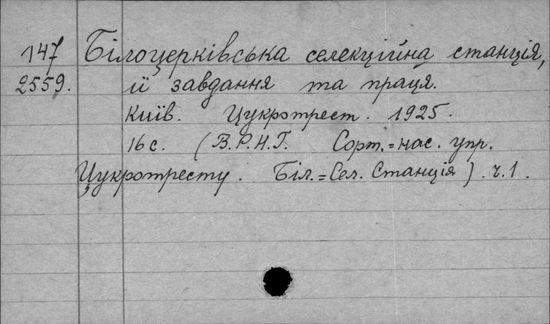 147 Білоцерківська селекційна станція,
2559. її завдання та праця.
Київ. Цукротрест. 1925.
16 с. (В.Р.Н.Г. Сорт.=нас. упр.
Цукротресту. Біл.=Сел. Станція). ч.1.